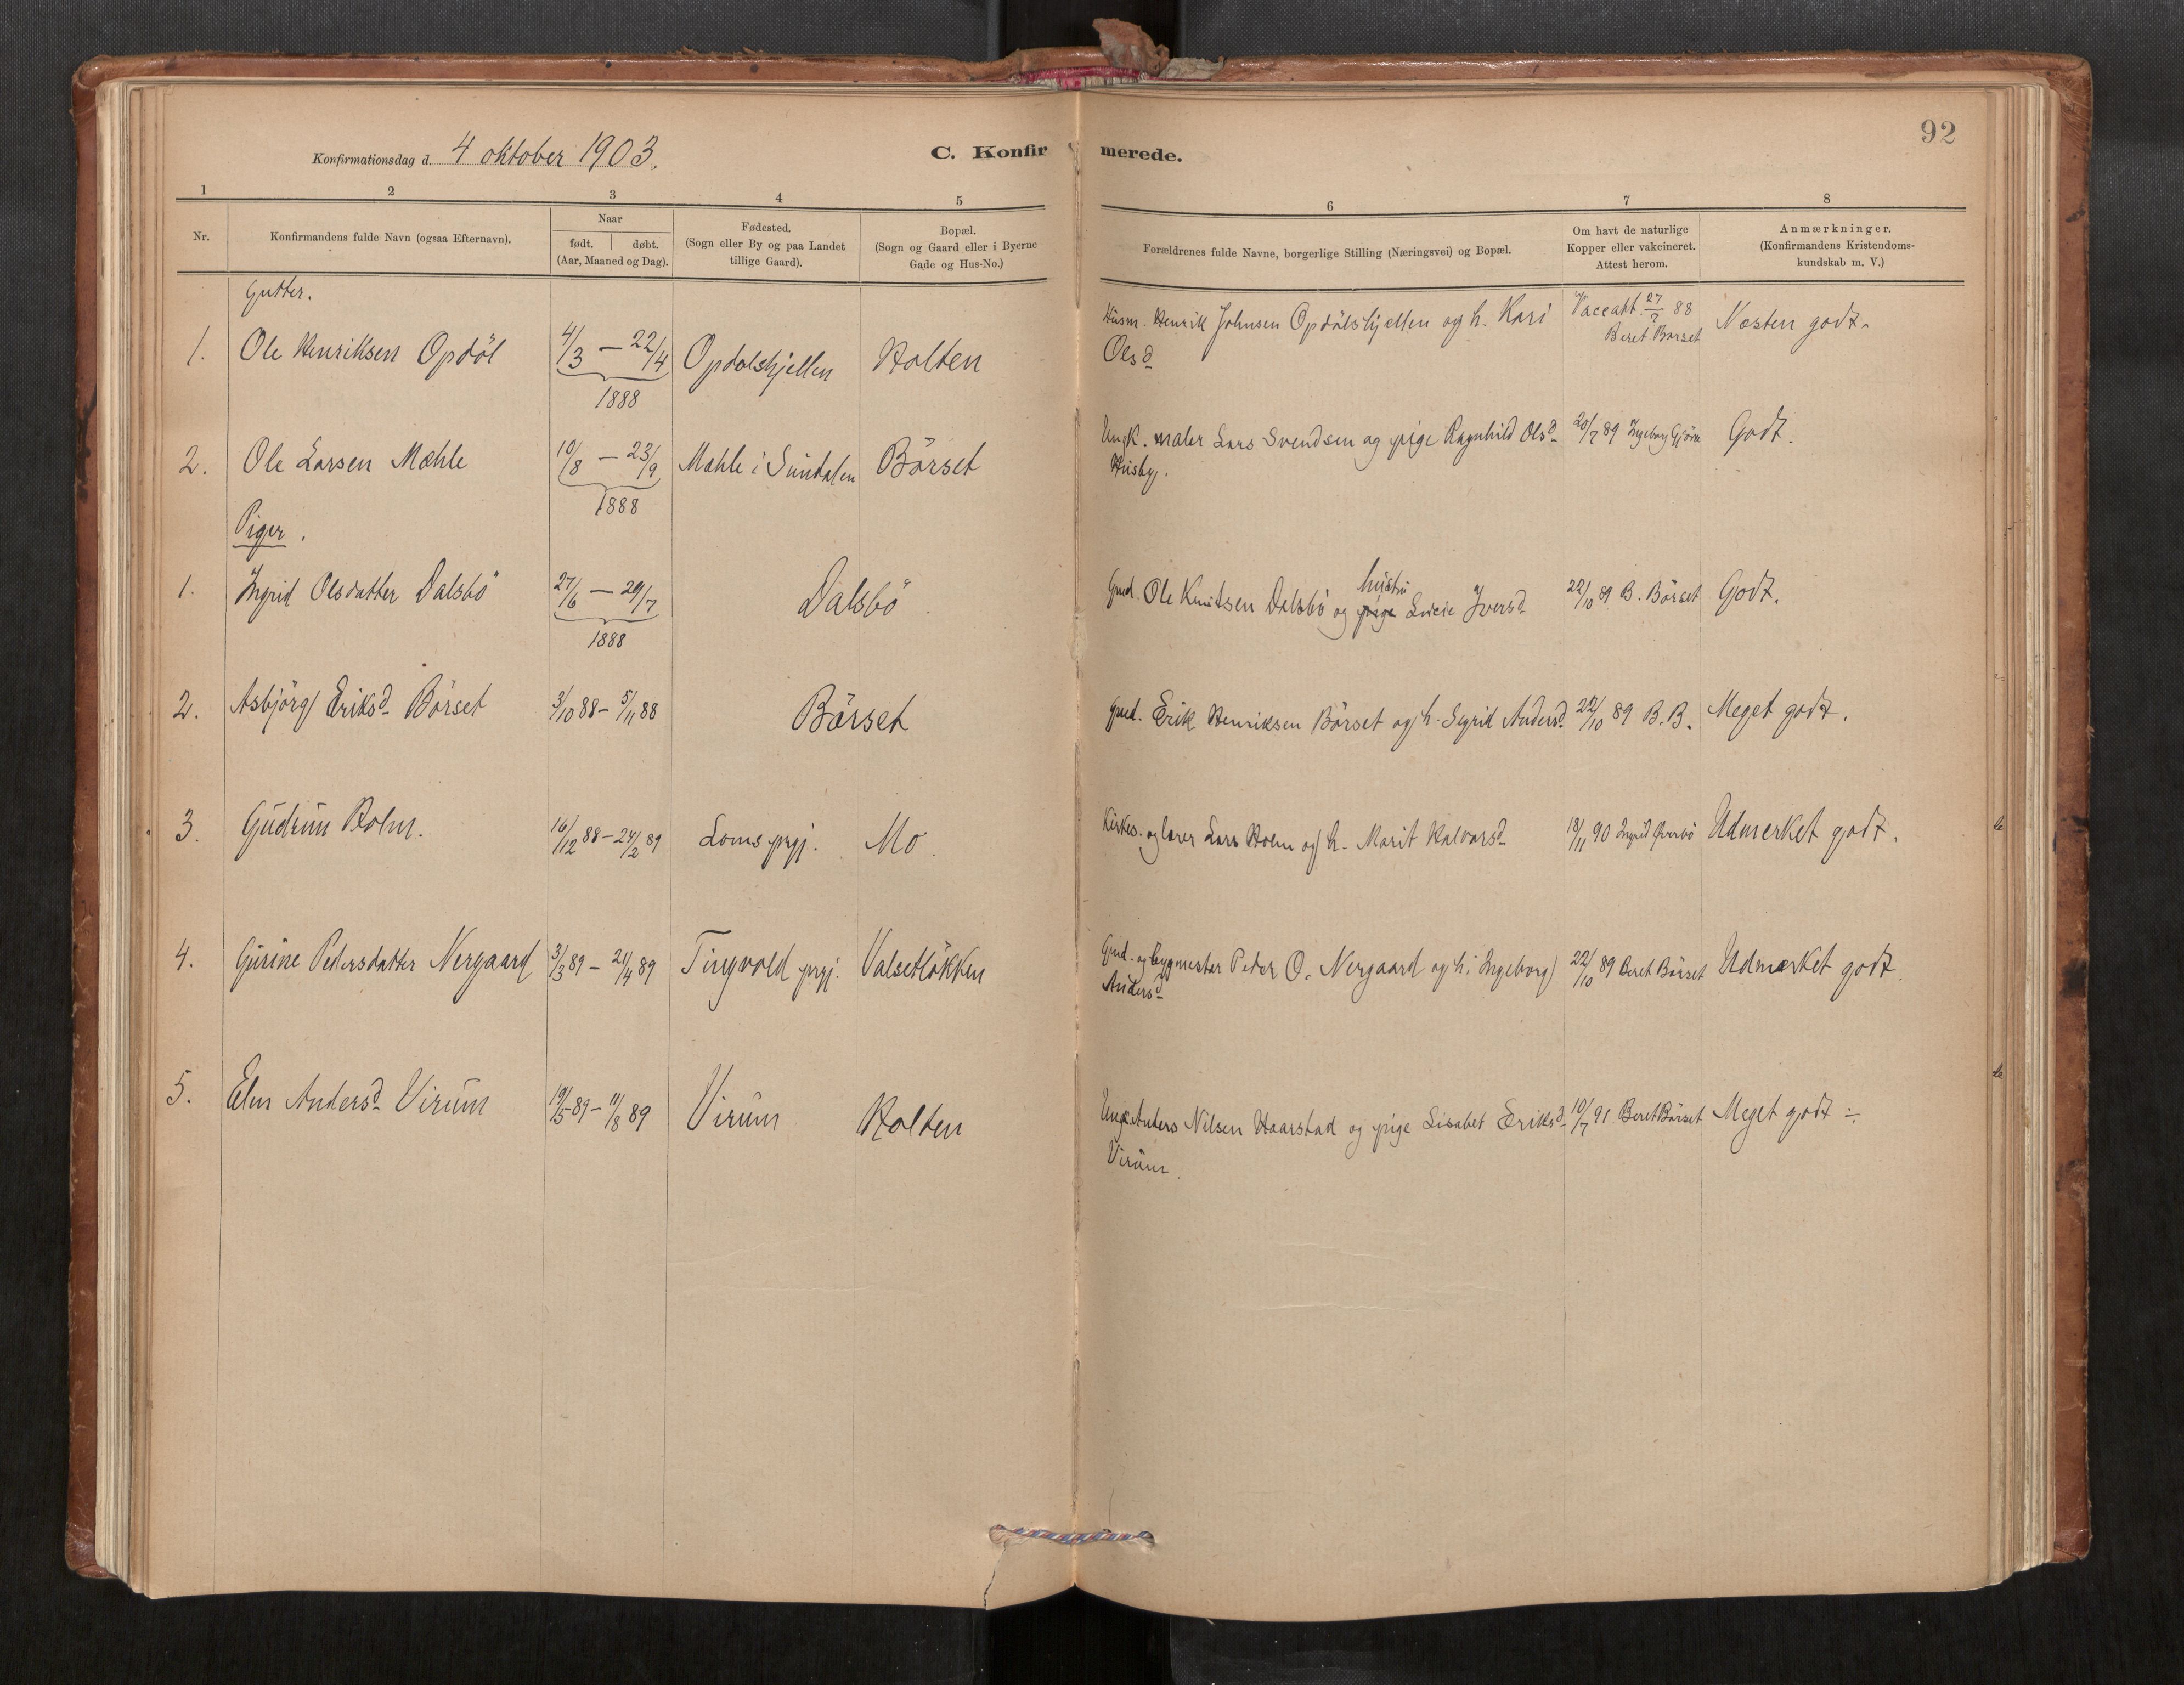 92
Konfirmationsdag d. 4 oktober 1903.
C. Konfirmerede.
1 2 3 4 5 6 7 8
Nr.
Konfirmandens fulde Navn (ogsaa Efternavn).
Naar
født. | døbt.
(Aar, Maaned og Dag).
Fødested.
(Sogn eller By og paa Landet
tillige Gaard).
Bopæl.
(Sogn og Gaard eller i Byerne
Gade og Hus-No.)
Forældrenes fulde Navne, borgerlige Stilling (Næringsvei) og Bopæl.
Om havt de naturlige
Kopper eller vakcineret.
Attest herom.
Anmærkninger.
(Konfirmandens Kristendoms-
kundskab m. V.)
Gutter.
1. Ole Henriksen Opdöl 4/3 — 22/4 Opdolshjellen Holten Husm. Henrik Johnsen Opdölshjellen og h. Kari Vaccatt. 27/7 88 Næsten godt.
1888 Olsd Beret Børset
2. Ole Larsen Mæhle 10/8 — 23/9 Mæhle i Sundalen Börset Ungk. maler Lars Svendsen og pige Ragnhild Olsd 20/7 89 Ingeborg Gjöra Godt.
1888 Husby.
Piger.
1. Ingrid Olsdatter Dalsbö 27/6 — 29/7 Dalsbö. Gmd. Ole Knutsen Dalsbö og pige hustru Iversd 22/10 89 B. Börset Godt.
1888
2. Asbjörg Eriksd Börset 3/10 88 – 5/11 88 Börset Gmd. Erik Henriksen Börset og h. Sigrid Andersd. 22/10 89 B. B. Meget godt.
3. Gudrun Holm. 16/12 88 – 24/2 89 Loms prgj. Mo. Kirkes. og lærer Lars Holm og h. Marit Halvorsd 18/11 90 Ingrid Udmerket godt.
4. Gurine Pedersdatter Nergaard 3/3 89 – 21/4 89 Tingvold prgj. Valsetlökken Gmd. og bygmester Peder O. Nergaard og h. Ingeborg 22/10 89 Beret Börset Udmærket godt.
Andersd
5. Elen Andersd Virum 19/5 89 – 11/8 89 Virum Holten Ungk. Anders Nilsen Haarstad og pige Lisabet Eriksd. 10/7 91 Beret Börset Meget godt ÷
Virum.